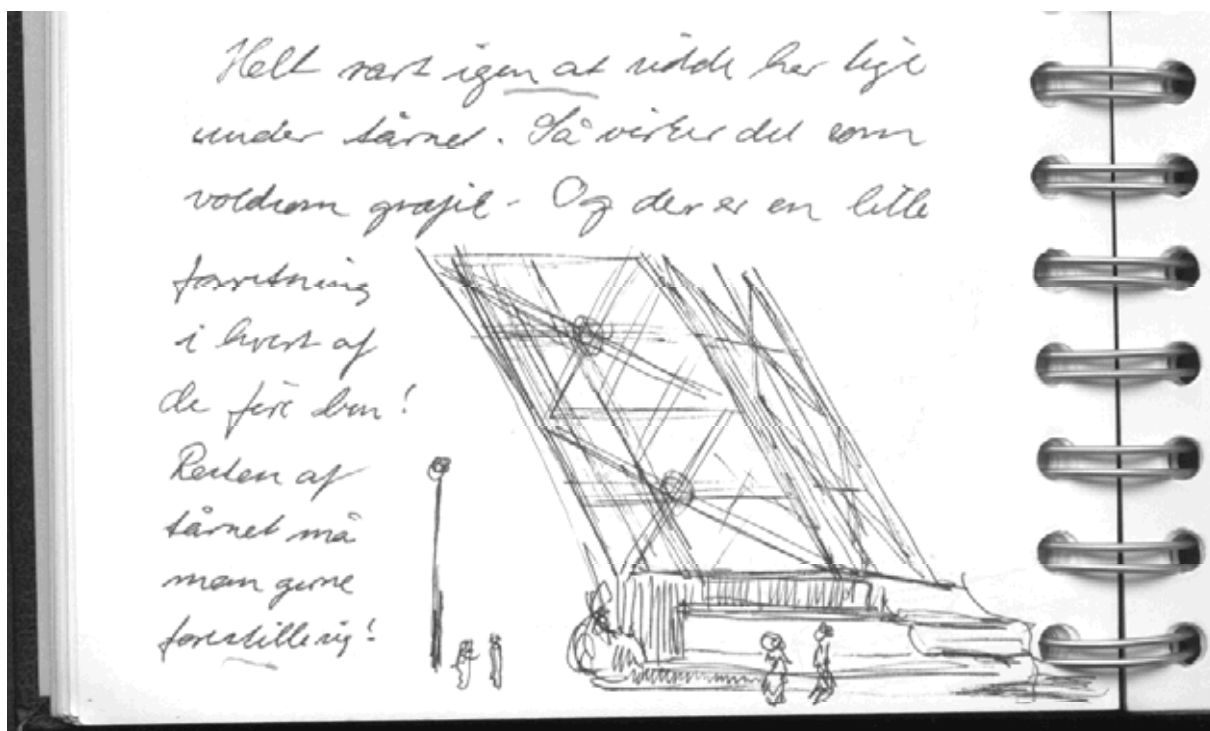 Helt rart igen at sidde her lige
under tårnet. Så virker det som
voldsom grafik - Og der er en lille
forretning
i hvert af
de fire ben!
Resten af
tårnet må
man gerne
forestille sig!